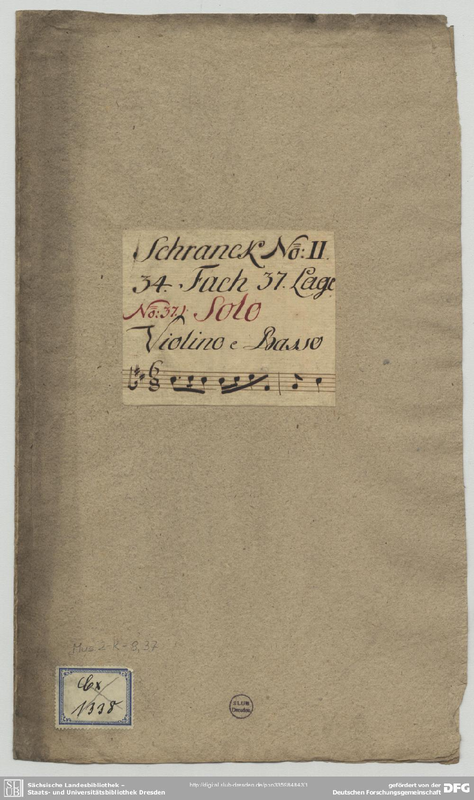 Schranck No: II.
34. Fach 37. Lage
No: 37.) Solo
Violino e Basso
6
8
Mus. 2-R-8,37
Cx
1338
SLUB
Dresden
SLUB
Sächsische Landesbibliothek –
Staats- und Universitätsbibliothek Dresden
gefördert von der
Deutschen Forschungsgemeinschaft
DFG